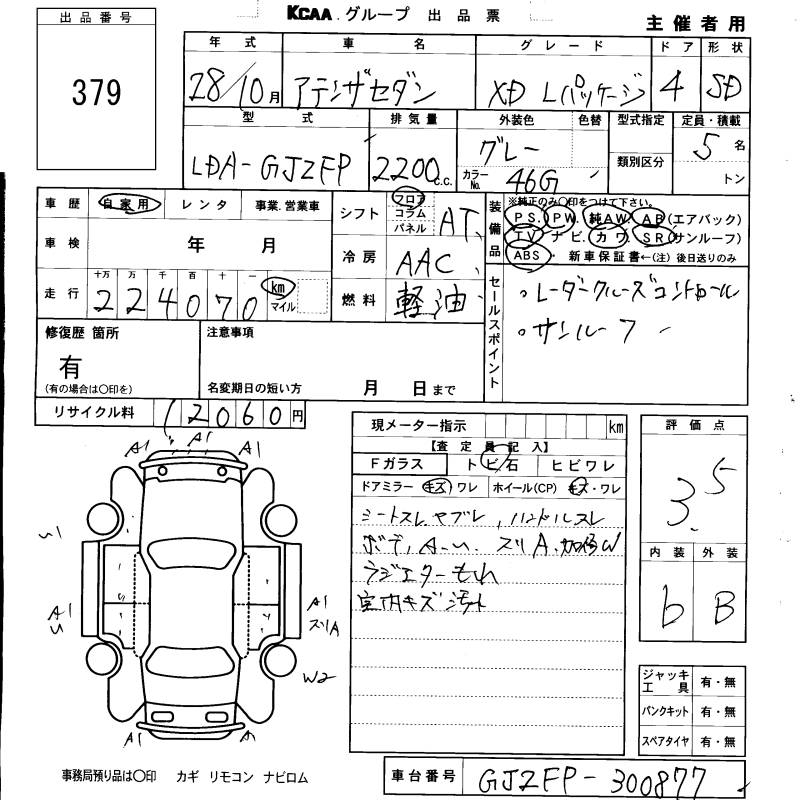 KCAA グループ 出品票
主催者用
出品番号
379
年式 車名 グレード ドア 形状
28/10月 アテンザセダン XD Lパッケージ 4 SD
型式 排気量 外装色 色替 型式指定 定員・積載
LDA-GJ2FP 2200 c.c. グレー カラーNo. 46G 類別区分 5名 トン
車歴 自家用 レンタ 事業.営業車
車検 年 月
走行 十万 万 千 百 十 一
224070 km マイル
シフト フロア コラム パネル AT
冷房 AAC
燃料 軽油
装備品 ※純正のみ○印をつけて下さい。
PS. PW. 純AW. AB(エアバック)
TV ナビ. カワ. SR(サンルーフ)
ABS・ 新車保証書←(注) 後日送りのみ
セールスポイント
。レーダークルーズコントロール
。サンルーフ
修復歴 箇所
有
(有の場合は○印を)
注意事項
名変期日の短い方 月 日まで
リサイクル料 12060円
現メーター指示 km
【査定員記入】
Fガラス トビ石 ヒビワレ
ドアミラー キズ ワレ ホイール(CP) キズ・ワレ
シートスレ ヤブレ, ハンドルスレ
ボディ A.U. スリA.加修W
ラジエターもれ
室内キズ 汚れ
評価点
3.5
内装 外装
b B
A1 A1 A1
U1
A1
U
A1
スリA
W2
A1 A1
ジャッキ工具 有・無
パンクキット 有・無
スペアタイヤ 有・無
事務局預り品は○印 カギ リモコン ナビロム
車台番号 GJ2FP-300877